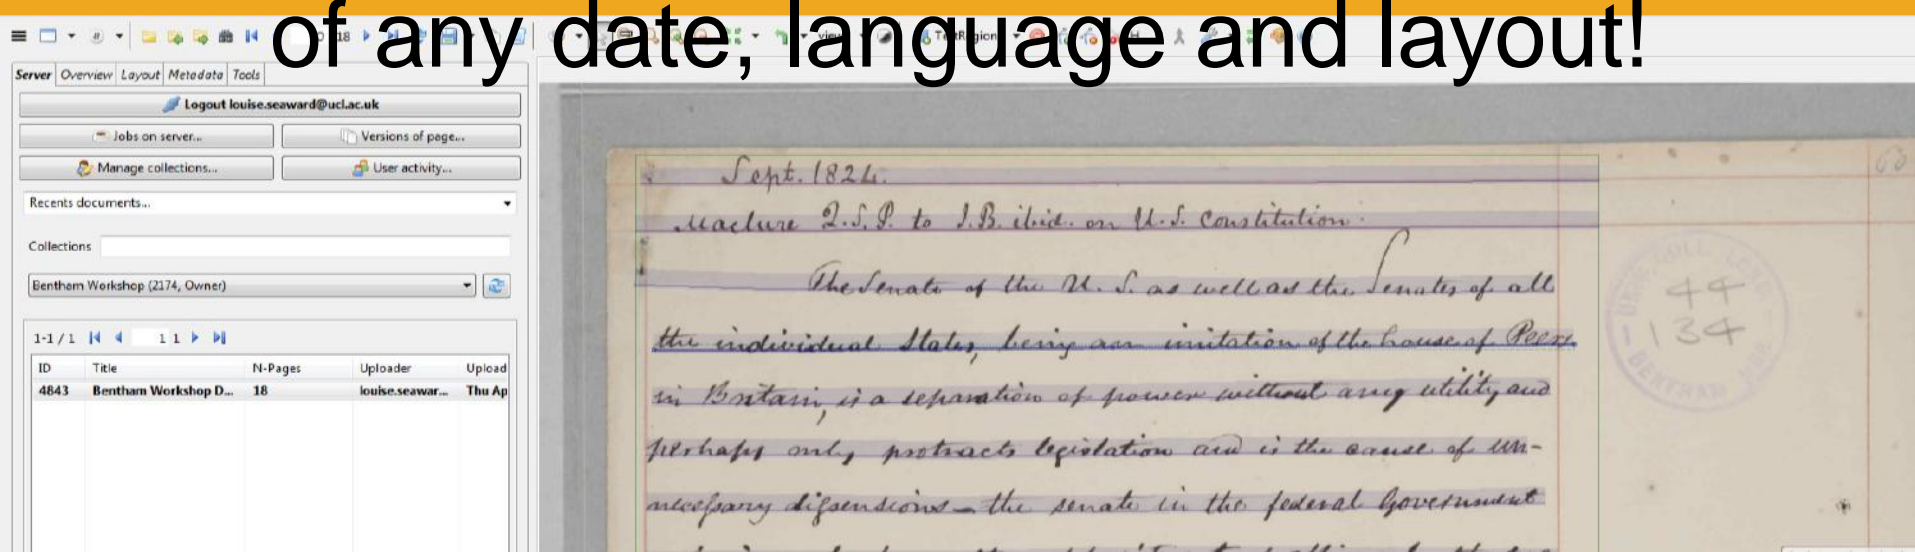 of any date, language and layout!
18
view
TextRegion
Server Overview Layout Metadata Tools
Logout louise.seaward@ucl.ac.uk
Jobs on server...
Versions of page...
Manage collections...
User activity...
Recents documents...
Collections
Bentham Workshop (2174, Owner)
1-1 / 1 1 1
ID Title N-Pages Uploader Upload
4843 Bentham Workshop D... 18 louise.seawar... Thu Ap
Sept. 1824.
Maclure Q.S.P. to J.B. ibid. on U.S. Constitution.
The Senate of the U. S. as well as the Senates of all
the individual States, being an imitation of the house of Peers
in Britain, is a separation of power without any utility, and
perhaps only protracts legislation and is the cause of un-
necessary dissensions – the senate in the federal Government
60
44
134
BENTHAM